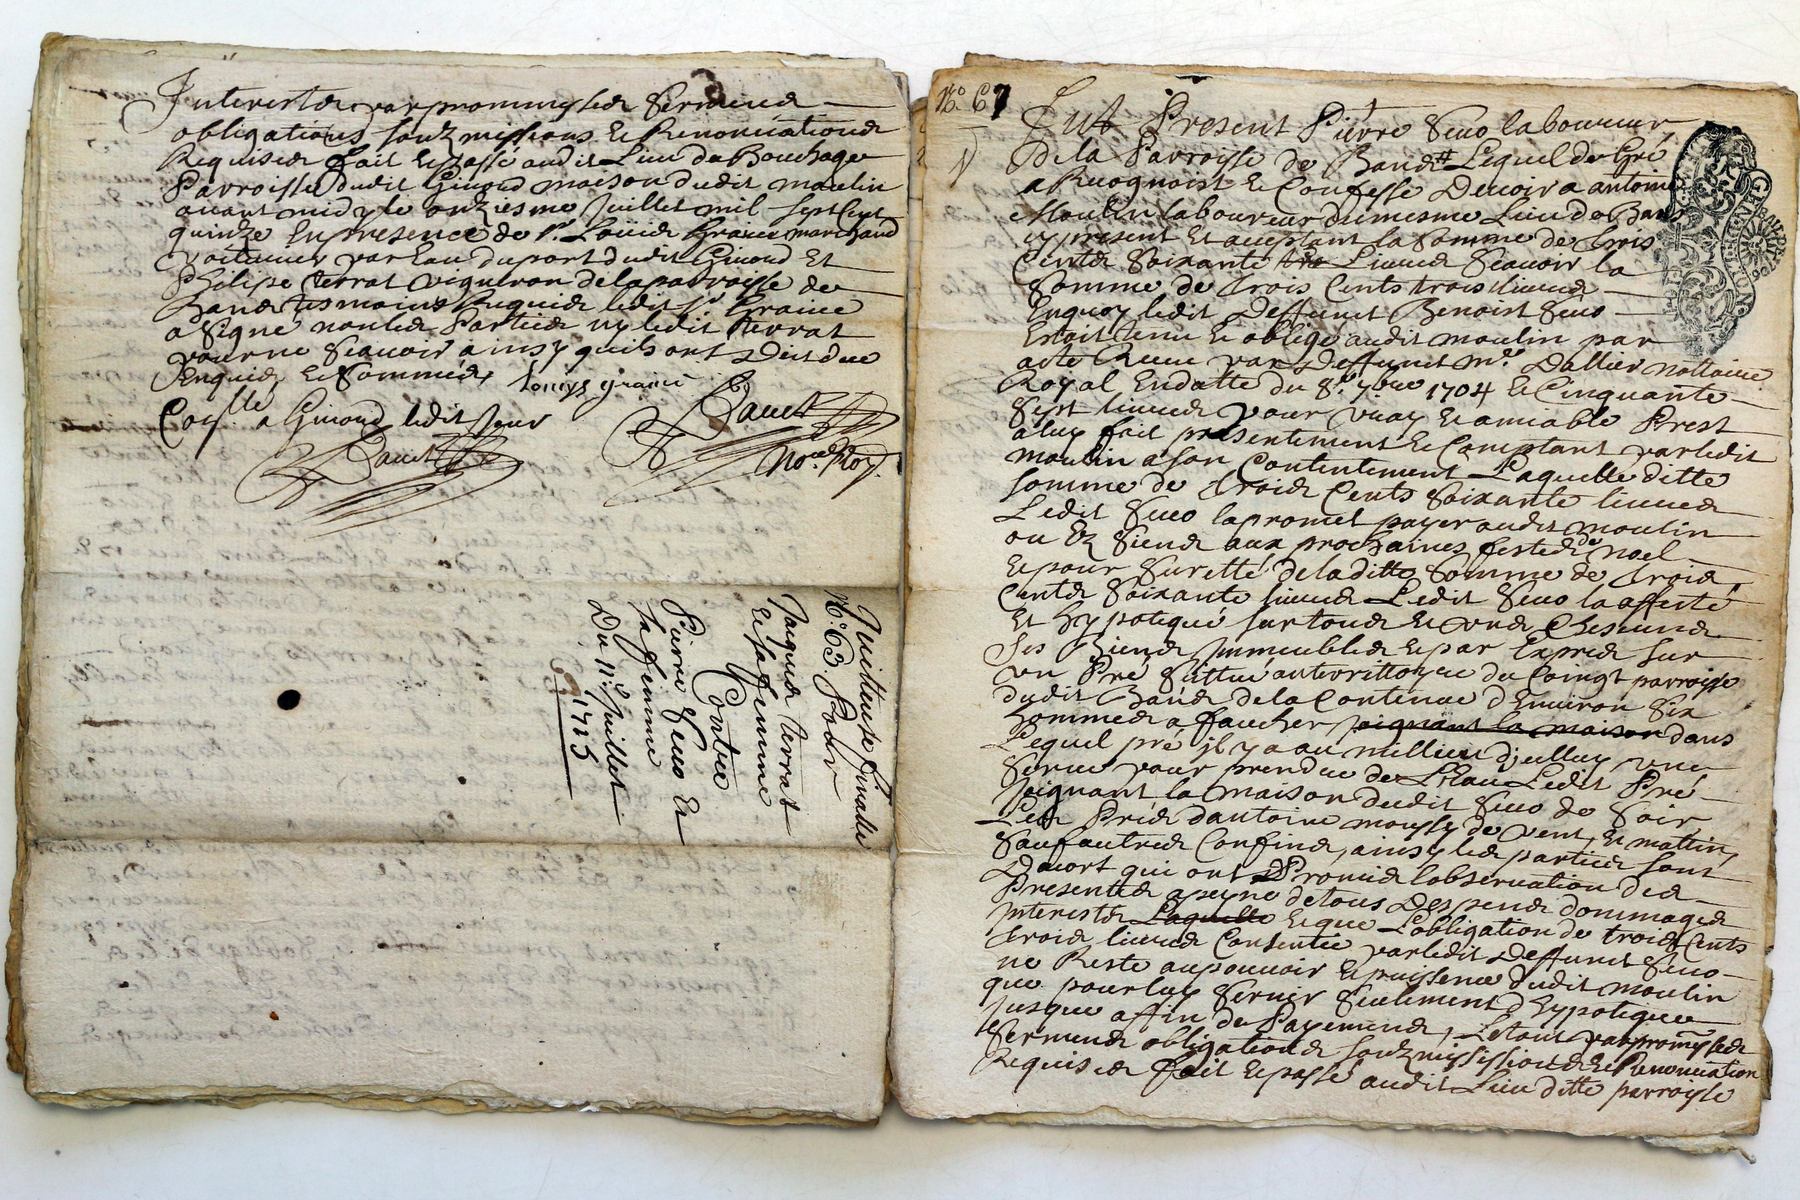 Interestz par prommesses serments
obligations soubzmissions et Renonciations
Requises fait et passé audit Lieu du Bouchage
Parroisse dudit Givord maison dudit moulin
avant midy le onziesme Juillet mil sept cent
quinze En presence de Sr. Loüis Granie marchand
voiturier par Eau du port dudit Givord Et
Philipe terrat vigneron de la parroisse de
Bans tesmoins Requis ledit Sr. Granie
a signé non les Parties ny ledit terrat
pour ne scavoir ainsy quils ont dit de ce
Enquis et sommés
Louys granié
a Givord ledit Jour
Quittance finalle
No. 63 Pour
Jaques terrat
et sa femme
Contre
Pierre Et
sa femme
Du 11e. Juillet
1715
No. 67
Fut Present Pierre laboureur
de la Parroisse de Bans Lequel de Gré
a Recognoist et Confesse Devoir a antoine
Moulin laboureur du mesme Lieu de Bans
cy present et acceptant la somme de trois
Cents soixante Livres scavoir la
somme de trois Cents trois livres
En quoy ledit Deffunct Benoist
Estoit tenu et obligé audit moulin par
acte Receu par Deffunct Me. Dallier nottaire
Royal En datte du 8e. 7bre 1704 et Cinquante
sept livres pour vray et amiable Prest
a luy fait presentement et Comptant par ledit
moulin a son Contentement Laquelle ditte
somme de trois Cents soixante livres
Ledit la promet payer audit moulin
ou Ez siens aux prochaines festes de noel
et pour suretté de la ditte somme de trois
Cents soixante livres Ledit la affecté
Et hypotequé sur tous et uns Chescuns
ses Biens Immeubles et par Expres sur
un Pré situé au territoire du Coingt parroisse
dudit Bans de la Contenue d'Environ six
hommes a faucher joignant la maison dans
Lequel pré il y a au millieu d'icelluy une
serve pour prendre de L'Eau Ledit Pré
joignant la maison dudit de soir
Les Prés dantoine moussy de vent et mattin
sauf autres Confins, ainsy les parties sont
Dacort qui ont Promis lobservation des
Presentes a peyne de tous Despens dommages
Interestz Laquelle et que Lobligation de trois Cents
trois livres Consentie par ledit Deffunct
ne Reste au pouvoir et puissence dudit moulin
que pour luy servir seulement d'hypoteque
jusque a fin de Payement, Le tout par promesses
serments obligations soubzmissions et Renonciation
Requises fait et passé audit Lieu ditte parroisse